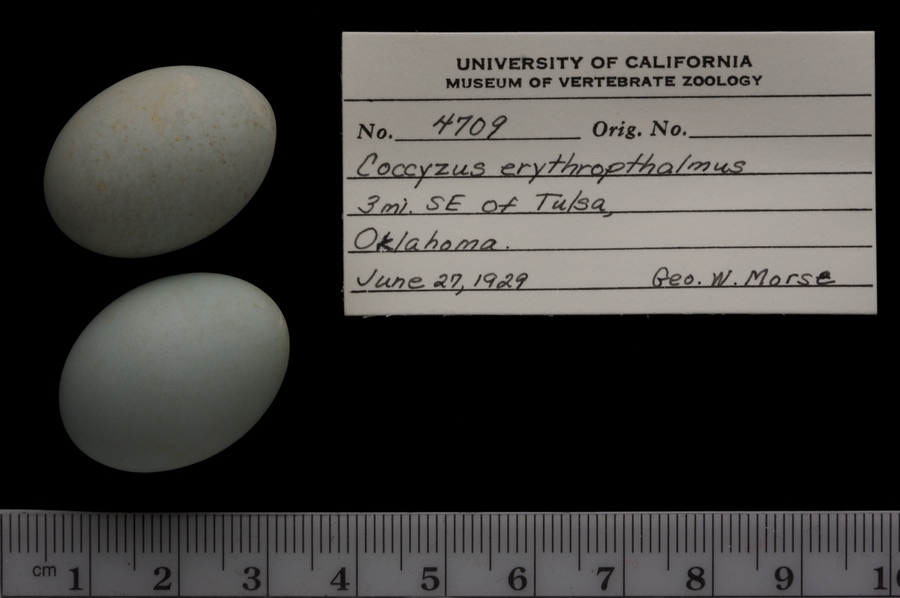 UNIVERSITY OF CALIFORNIA
MUSEUM OF VERTEBRATE ZOOLOGY
No. 4709 Orig. No.
Coccyzus erythropthalmus
3mi. SE of Tulsa,
Oklahoma.
June 27, 1929 Geo. W. Morse
cm 1 2 3 4 5 6 7 8 9 1